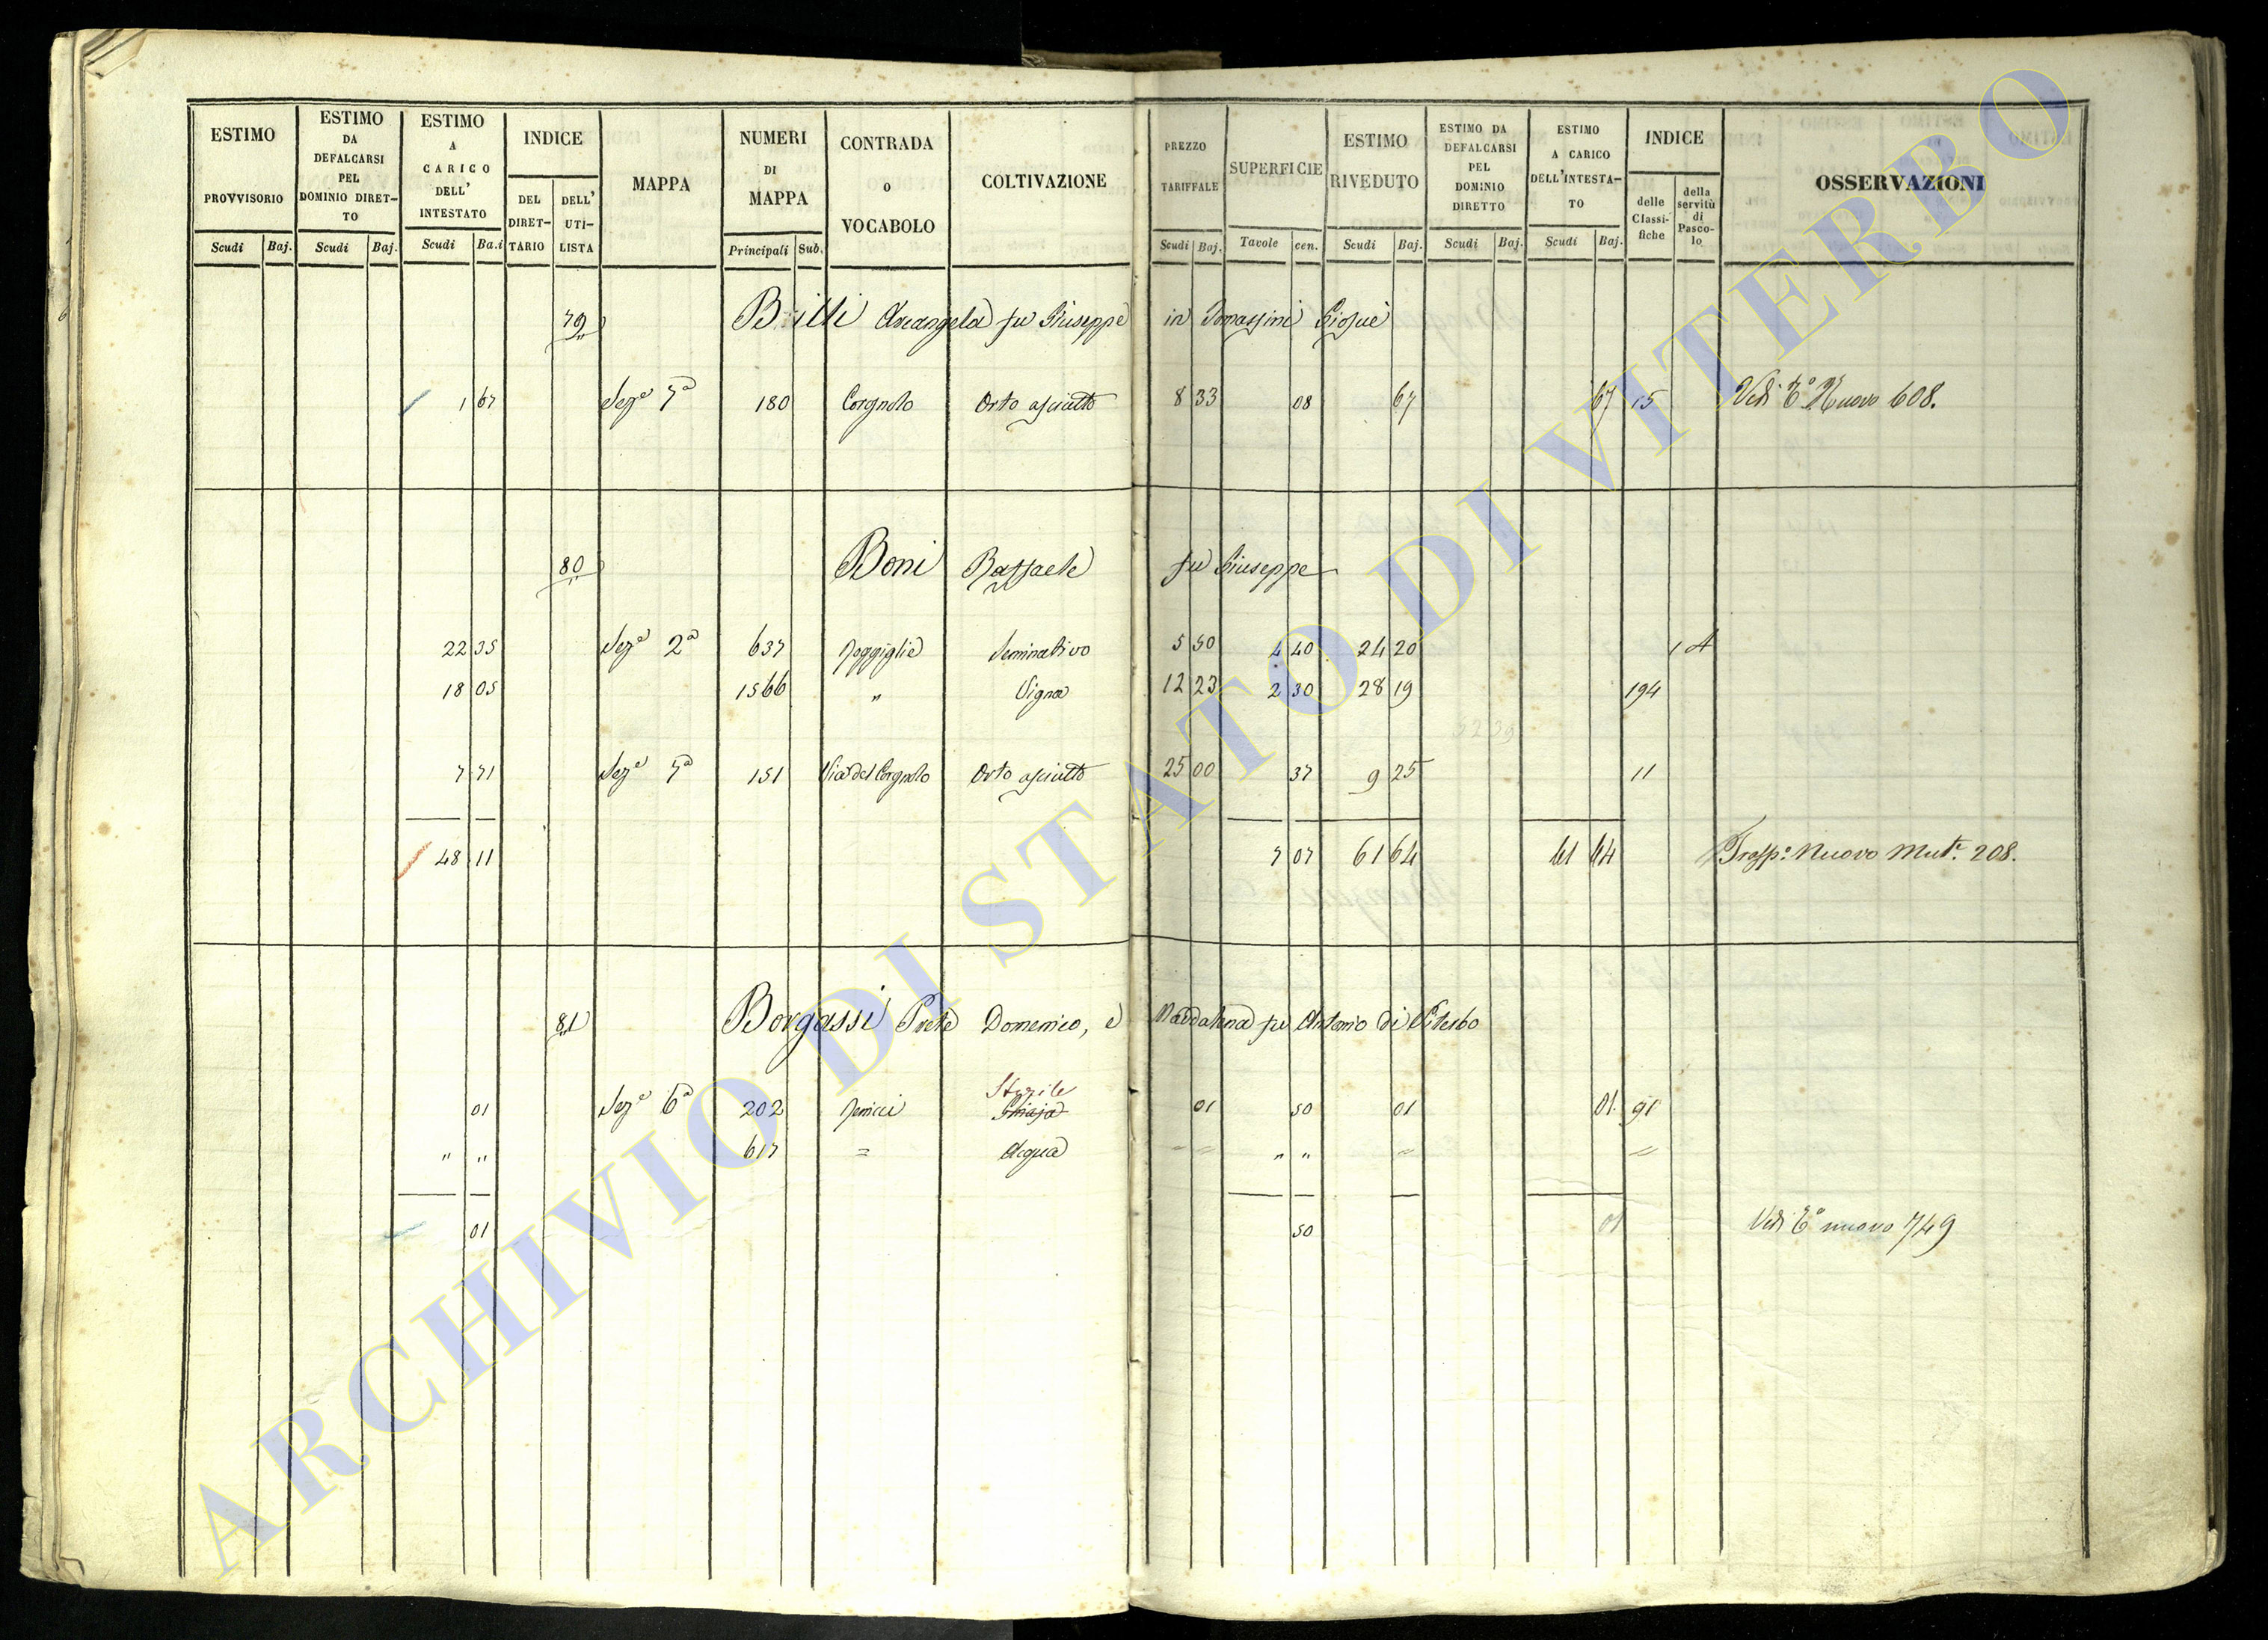 ESTIMO PROVVISORIO Scudi Baj.
ESTIMO DA DEFALCARSI PEL DOMINIO DIRETTO Scudi Baj.
ESTIMO A CARICO DELL' INTESTATO Scudi Ba.i
INDICE DEL DIRETTARIO DELL' UTILISTA
MAPPA
NUMERI DI MAPPA Principali Sub.
CONTRADA O VOCABOLO
COLTIVAZIONE
PREZZO TARIFFALE Scudi Baj.
SUPERFICIE Tavole cen.
ESTIMO RIVEDUTO Scudi Baj.
ESTIMO DA DEFALCARSI PEL DOMINIO DIRETTO Scudi Baj.
ESTIMO A CARICO DELL'INTESTATO Scudi Baj.
INDICE delle Classifiche della servitù di Pascolo
OSSERVAZIONI
79 Brilli Arcangela fu Giuseppe in Tomassini Giosuè
1 67 Seze 7a 180 Corgnolo Orto asciutto 8 33 08 67 67 15 Vedi To Nuovo 608.
80 Boni Raffaele fu Giuseppe
22 35 Seze 2a 637 Poggiglie Seminativo 5 50 4 40 24 20 1 A
18 05 1566 " Vigna 12 23 2 30 28 19 194
52 39
7 71 Seze 7a 151 Via del Corgnolo Orto asciutto 25 00 37 9 25 11
48 11 7 07 61 64 61 64 Trasp.o Nuovo Mut.e 208.
81 Borgassi Prete Domenico, e Maddalena fu Antonio di Viterbo
Sterile
01 Seze 6a 202 Ghiaja 01 50 01 01 91
" " 617 = Acqua = = " " = =
01 50 01 Vedi To nuovo 749
ARCHIVIO DI STATO DI VITERBO